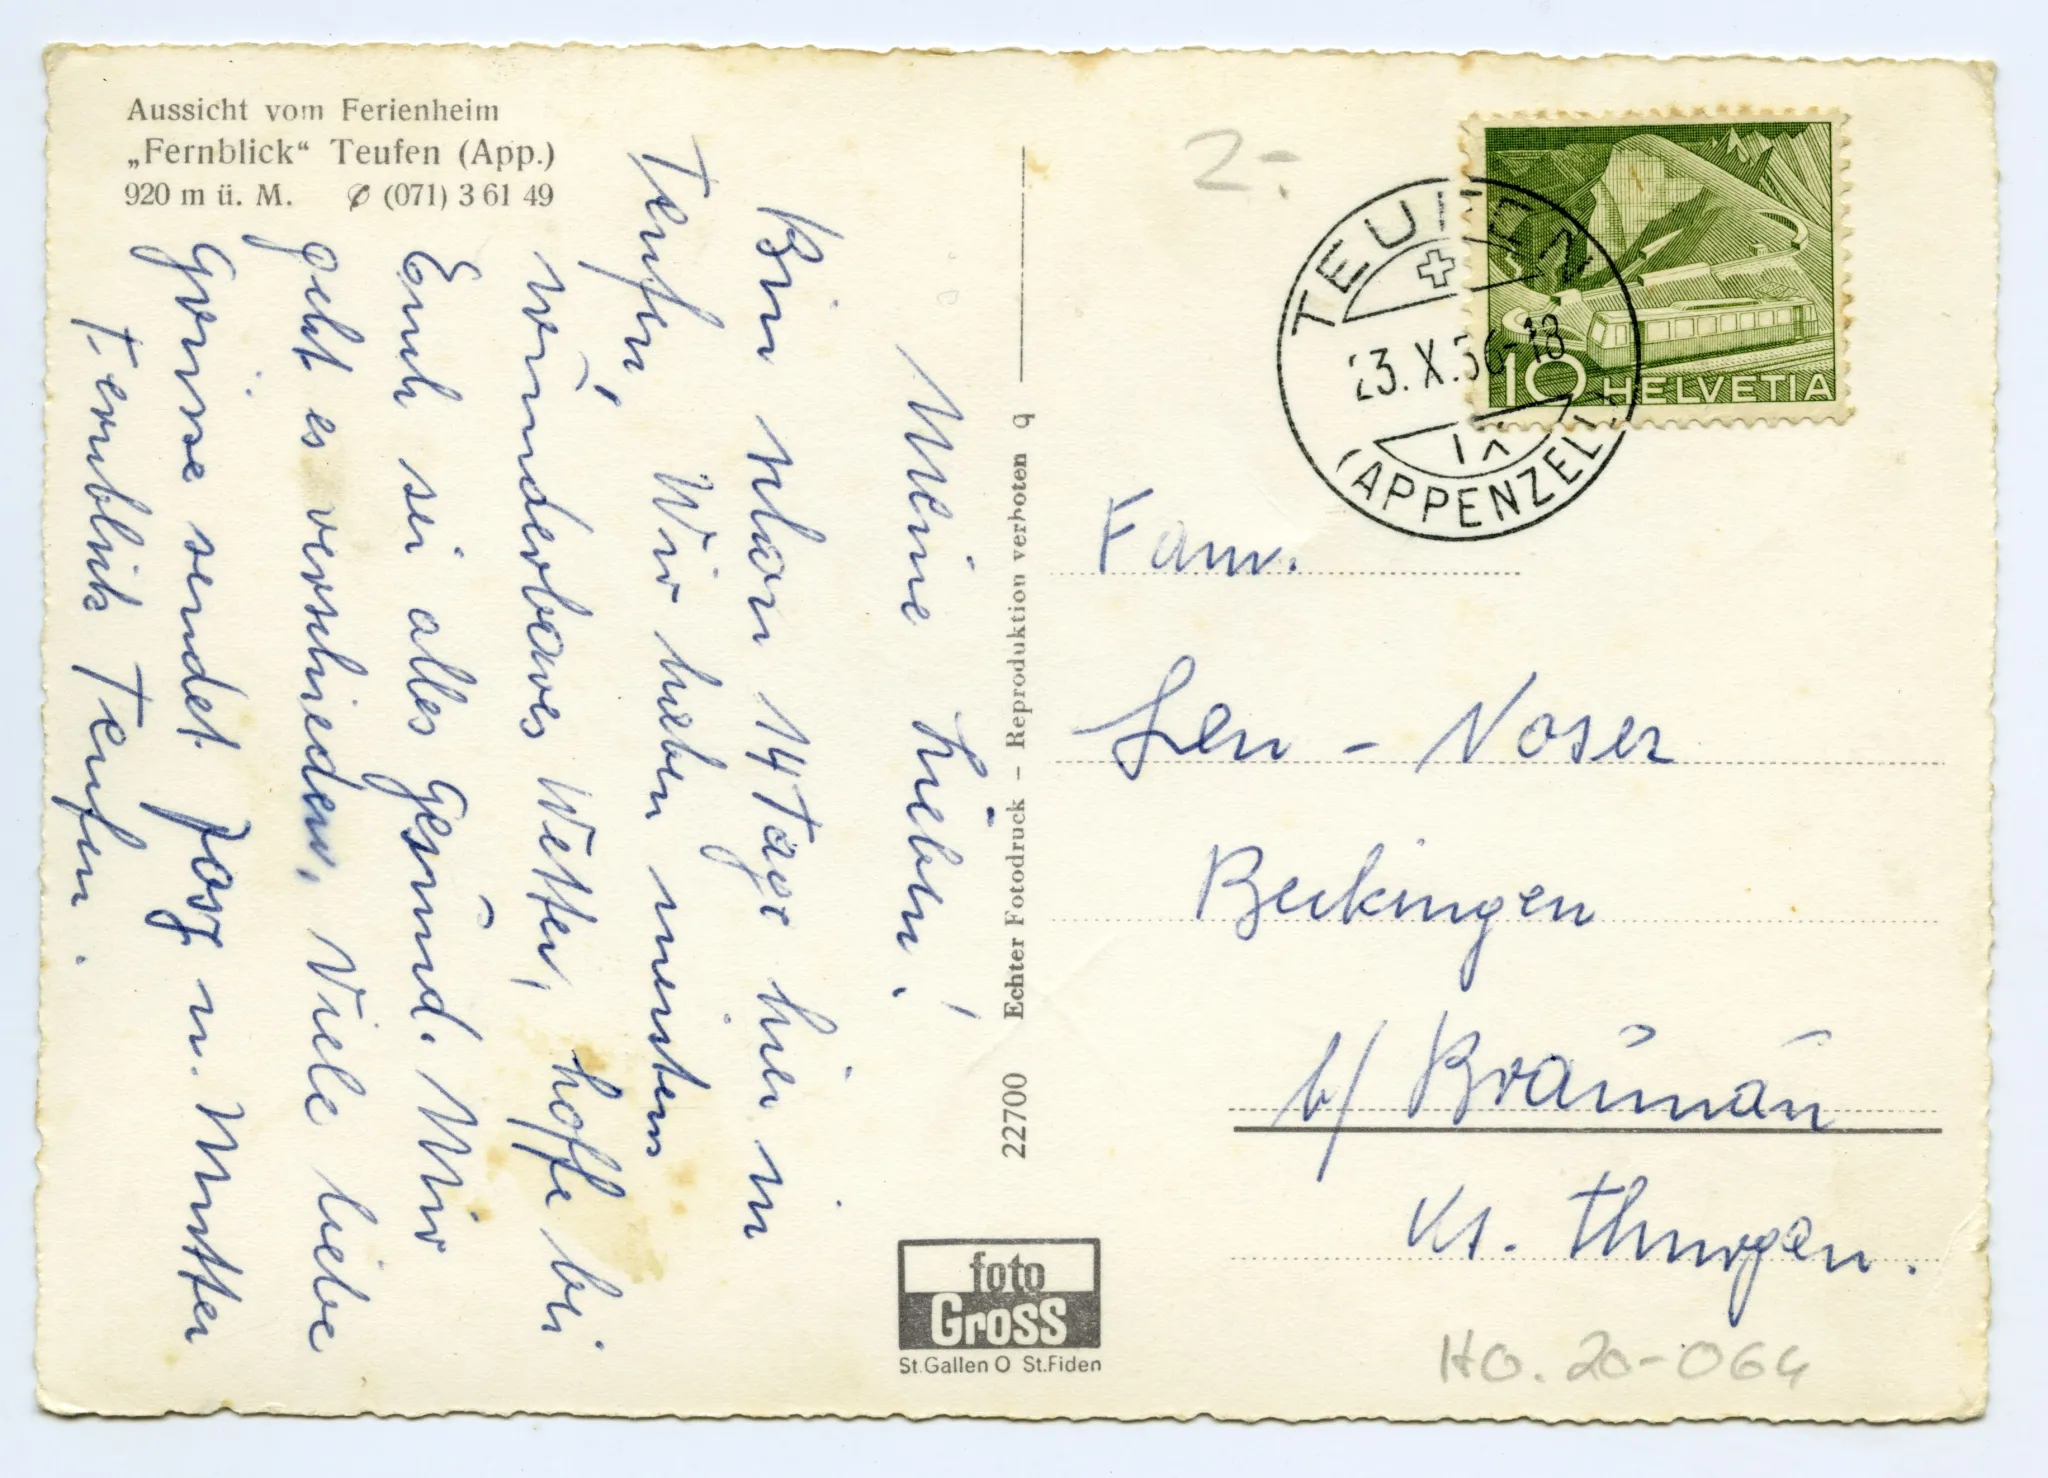 Aussicht vom Ferienheim
„Fernblick“ Teufen (App.)
920 m ü. M. ✆ (071) 3 61 49
Meine Lieben!
Bin schon 14 Tage hier in
Teufen, Wir haben meistens
wunderbares Wetter, hoffe bei
Euch sei alles Gesund. Mir
geht es verschieden, Viele liebe
Grüsse sendet u. Mutter
Fernblick Teufen.
22700 Echter Fotodruck – Reproduktion verboten q
foto
Gross
St.Gallen O St.Fiden
2.-
TEUFEN
23.X.56-18
(APPENZELL)
10 HELVETIA
Fam.
- Noser
Beckingen
b/ Braunau
Kt. Thurgau.
HO. 20-064